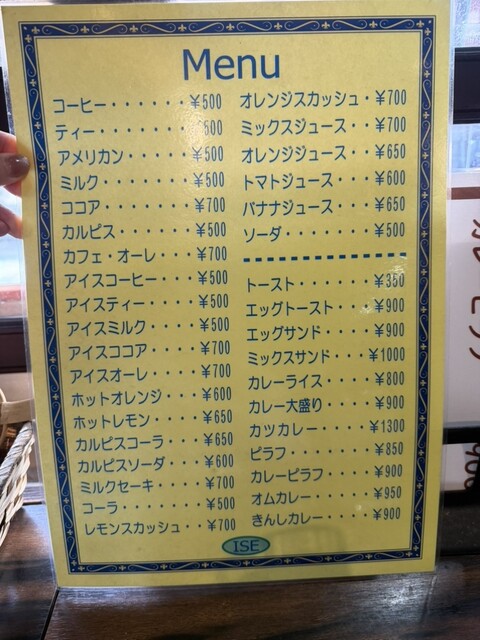 Menu
コーヒー・・・・・・・¥500
ティー・・・・・・・・¥500
アメリカン・・・・・・¥500
ミルク・・・・・・・・¥500
ココア・・・・・・・・¥700
カルピス・・・・・・・¥500
カフェ・オーレ・・・・¥700
アイスコーヒー・・・・¥500
アイスティー・・・・・¥500
アイスミルク・・・・・¥500
アイスココア・・・・・¥700
アイスオーレ・・・・・¥700
ホットオレンジ・・・・¥600
ホットレモン・・・・・¥650
カルピスコーラ・・・・¥650
カルピスソーダ・・・・¥600
ミルクセーキ・・・・・¥700
コーラ・・・・・・・・¥500
レモンスカッシュ・・・¥700
オレンジスカッシュ・・¥700
ミックスジュース・・・¥700
オレンジジュース・・・¥650
トマトジュース・・・・¥600
バナナジュース・・・・¥650
ソーダ・・・・・・・・¥500
トースト・・・・・・・¥350
エッグトースト・・・・¥900
エッグサンド・・・・・¥900
ミックスサンド・・・・¥1000
カレーライス・・・・・¥800
カレー大盛り・・・・・¥900
カツカレー・・・・・・¥1300
ピラフ・・・・・・・・¥850
カレーピラフ・・・・・¥900
オムカレー・・・・・・¥950
きんしカレー・・・・・¥900
ISE